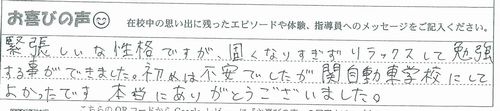 お喜びの声
在校中の思い出に残ったエピソードや体験、指導員へのメッセージをご記入ください。
緊張しいな性格ですが、固くなりすぎずリラックスして勉強
する事ができました。初めは不安でしたが関自動車学校にして
よかったです 本当にありがとうございました。